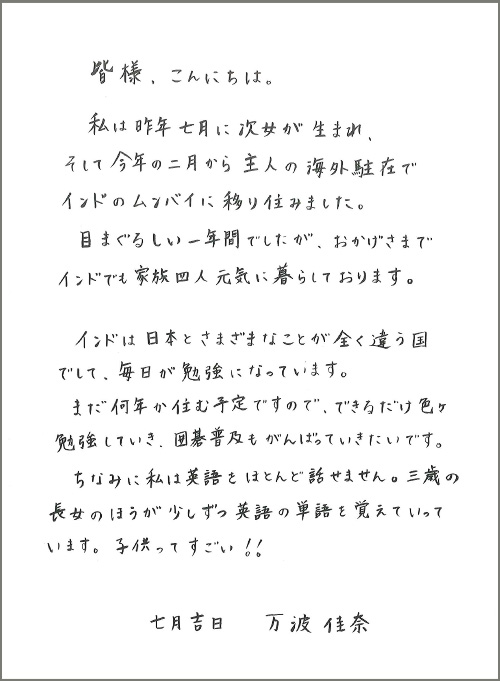 皆様、こんにちは。
私は昨年七月に次女が生まれ、
そして今年の二月から主人の海外駐在で
インドのムンバイに移り住みました。
目まぐるしい一年間でしたが、おかげさまで
インドでも家族四人元気に暮らしております。
インドは日本とさまざまなことが全く違う国
でして、毎日が勉強になっています。
まだ何年か住む予定ですので、できるだけ色々
勉強していき、囲碁普及もがんばっていきたいです。
ちなみに私は英語をほとんど話せません。三歳の
長女のほうが少しずつ英語の単語を覚えていって
います。子供ってすごい!!
七月吉日 万波佳奈